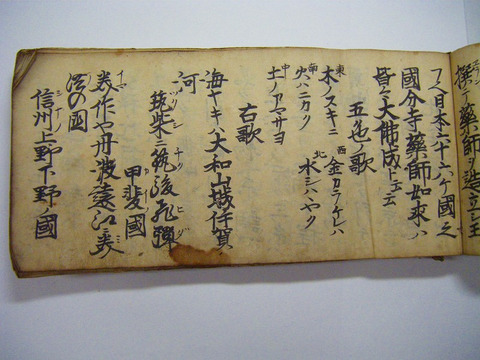 撰テ藥師ヲ造立シ玉
フ日本三十六ケ國之
國分寺藥師如來ハ
皆々大佛成ト云云
五色ノ歌
東 西
木ノスキニ 金カラケレハ
南 北
火ハニカク 水シハヤク
中
土ノアマサヨ
右歌
海ナキハ大和山城伊賀ノ
河 筑紫ニ筑後飛彈
甲斐國
美作や丹波遠江ニ美
濃の國
信州上野下野ノ國